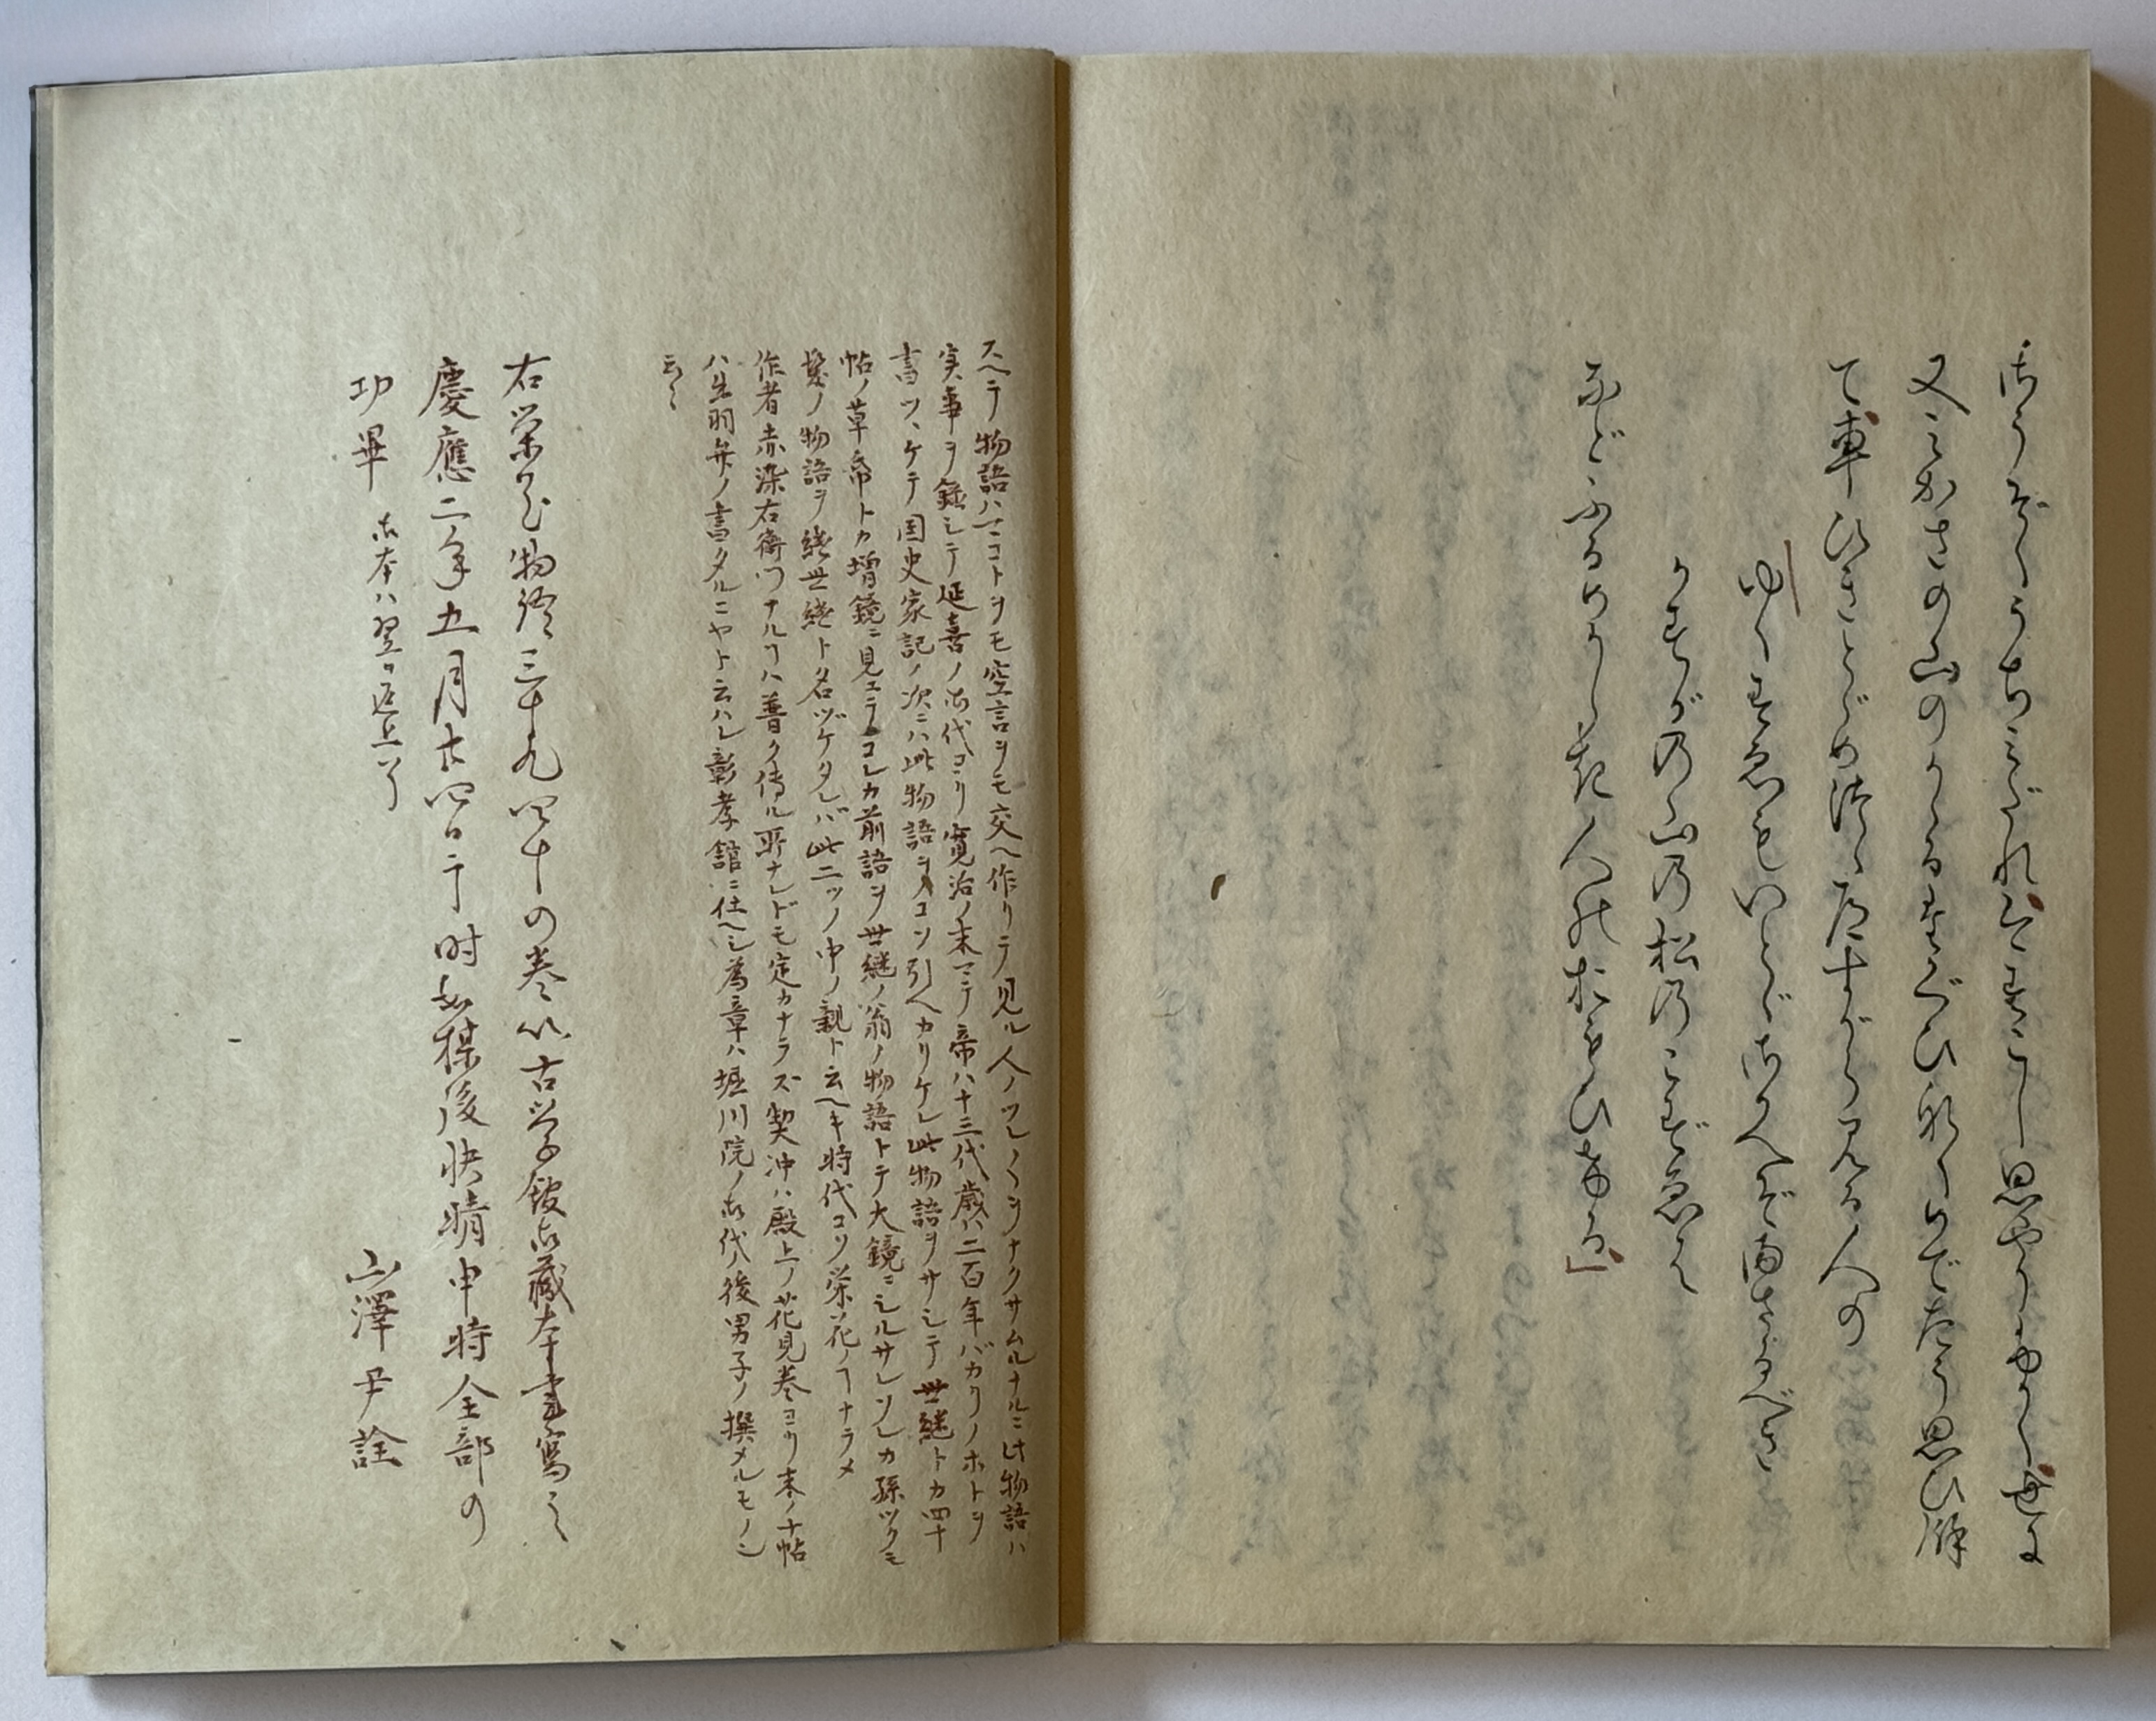 御うぞくうちみだれんにすこし思やりもかくせよ
又みかさの山のかゝるすぐひ那くめでたう思ひ餘
て車ひきとゞめつゝ
見る人の
ゆくすゑもいとゞさかへぞまさるべき
かすが乃山乃松乃こずゑは
などふるめかしき人のおもひける
スヘテ物語ハマコトヲモ空言ヲモ交ヘ作リテ見ル人ノツレ〱ヲナクサムルナルニ此物語ハ
実事ヲ録シテ延喜ノ御代ヨリ寛治ノ末マテ帝ハ十三代歳ハ二百年バカリノホトヲ
書ツヽケテ国史家記ノ次ニハ此物語ヲコソ引ヘカリケレ此物語ヲサシテ世継トカ四十
帖ノ草帋トカ増鏡ニ見エテコレカ前語ヲ世継ノ翁ノ物語トテ大鏡ニシルサレソレカ孫ツクモ
髪ノ物語ヲ続世継ト名ヅケタレバ此二ツノ中ノ親ト云ヘキ時代ヨリ栄花ノヿナラメ
作者赤染右衛門ナルヿハ普ク傳ル所ナレドモ定カナラズ契沖ハ殿上ノ花見巻ヨリ末ノ十帖
ハ出羽弁ノ書タルニヤト云ハレ彰孝館ニ仕ヘシ為章ハ堀川院ノ御代ノ後男子ノ撰メルモノシ
云〻
右栄花物語三十九四十の巻以古学館御蔵本書寫之
慶應二年五月廿四日于時
後快晴申時全部の
功畢 御本ハ翌日返上了
山澤尹詮